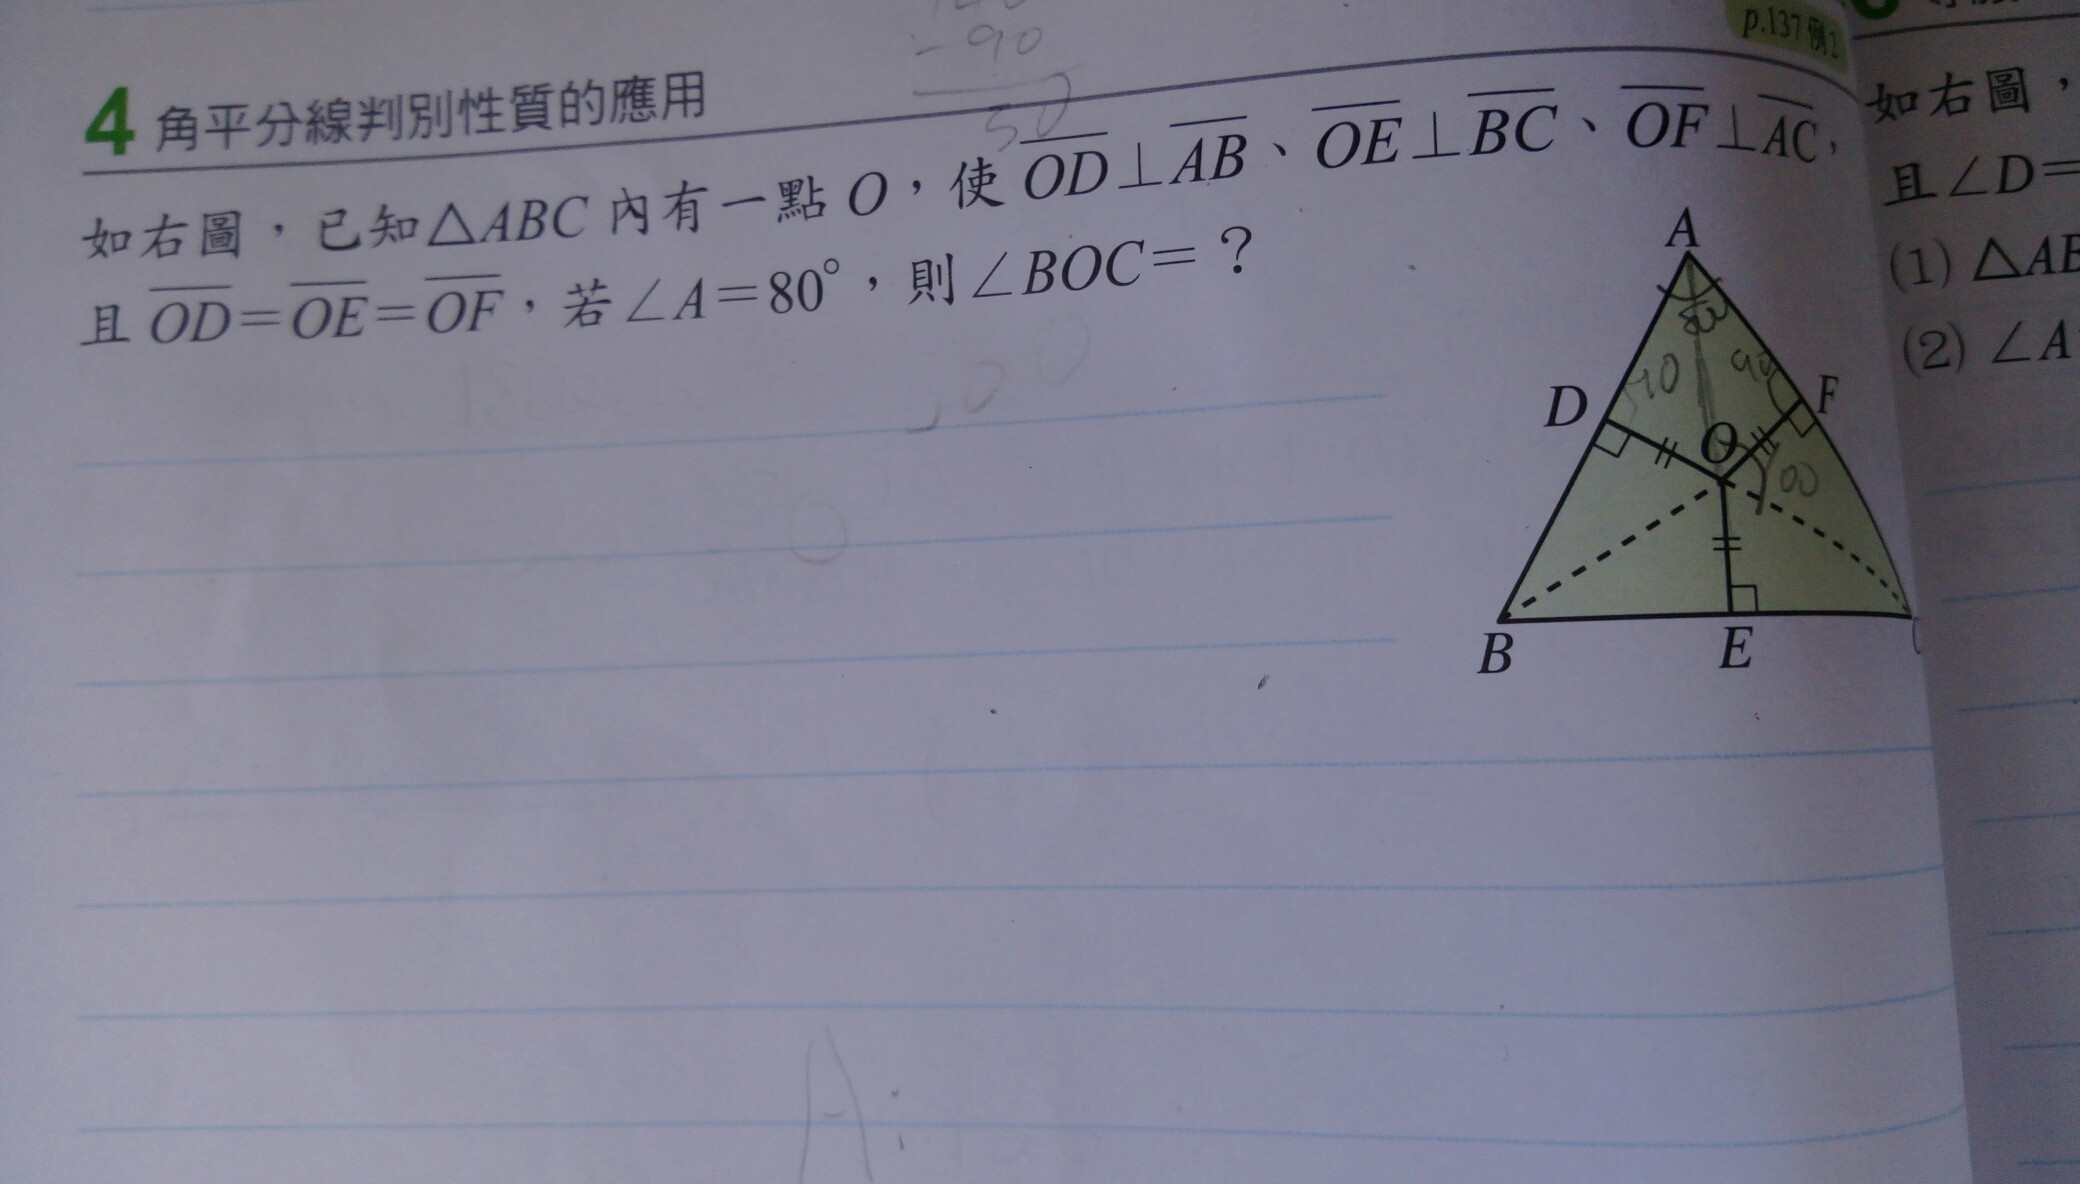 -90
50
p.137 例2
4 角平分線判別性質的應用
如右圖,已知△ABC 內有一點 O,使 OD⊥AB、OE⊥BC、OF⊥AC,
且 OD=OE=OF,若∠A=80°,則∠BOC=?
A
D
F
O
B
E
90
100
A:
如右圖,
且∠D=
(1) △AB
(2) ∠A